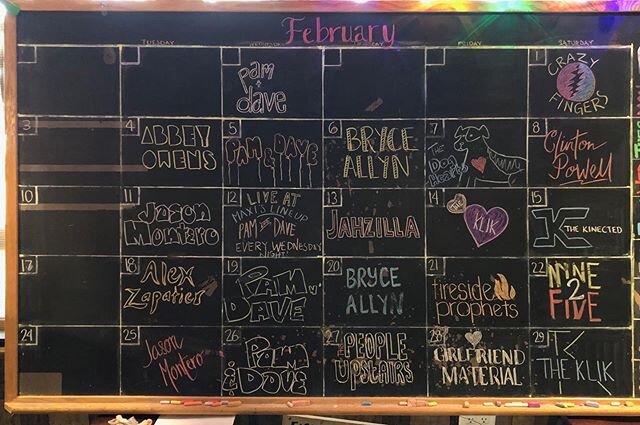 February
TUESDAY
WEDNESDAY
THURSDAY
FRIDAY
SATURDAY
Pam
&
dave
1
CRAZY
FINGERS
3
4
ABBEY
OWENS
5
PAM & DAVE
6
BRYCE
ALLYN
7
The
Dog
Hearts
8
Clinton
Powell
10
11
Jason
Montero
12
LIVE AT
MAXI'S LINEUP
PAM AND DAVE
EVERY WEDNESDAY
NIGHT!
13
JAHZILLA
14
THE
KLIK
15
THE KINECTED
17
18
Alex
Zapatier
19
PAM
DAVE
20
BRYCE
ALLYN
21
fireside
prophets
22
NINE
2
FIVE
24
25
Jason
Montero
26
Pam
& Dave
27
THE PEOPLE
UPSTAIRS
28
GIRLFRIEND
MATERIAL
29
THE KLIK